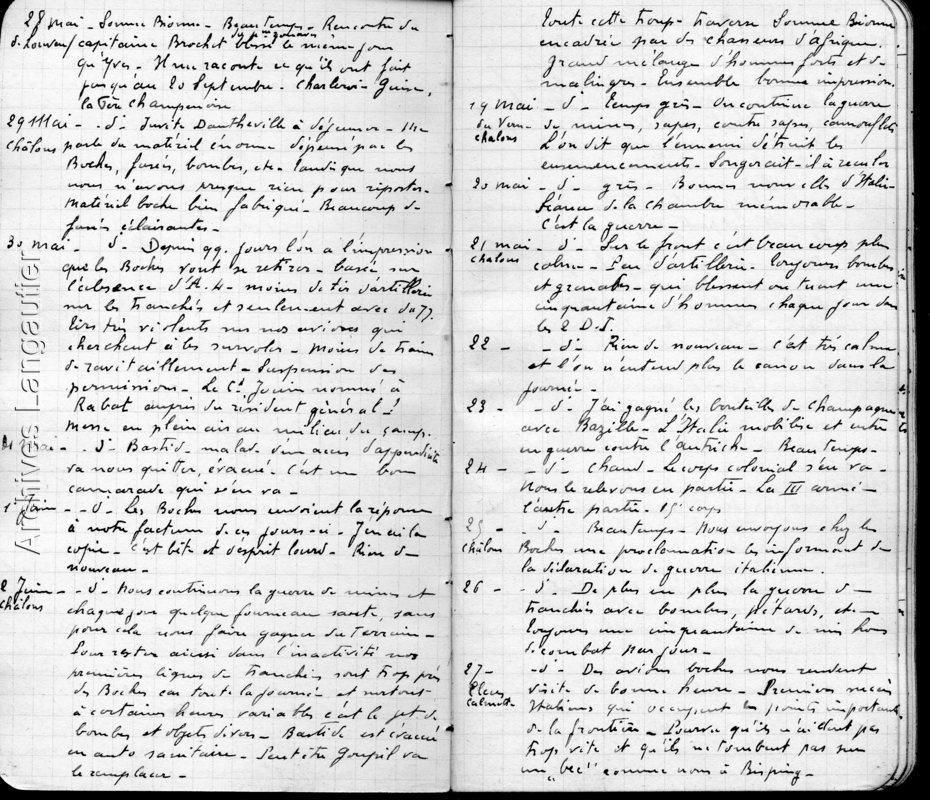 28 mai - Somme Bionne - Beau temps - Rencontre du
capitaine Brochet blessé le même jour
du zouaves
qu'Yves - Il me raconte ce qu'ils ont fait
jusqu'au 20 Septembre - Charleroi - Guise,
la Fère Champenoise
29 Mai - d° - Invité Dautheville à déjeuner - Me
Châlons parle du matériel énorme dépensé par les
Boches, fusées, bombes, etc - tandis que nous
nous n'avons presque rien pour riposter -
Matériel boche bien fabriqué - Beaucoup de
fusées éclairantes -
30 mai - d° - Depuis qq. jours l'on a l'impression
que les Boches vont se retirer - basée sur
l'absence d'A.L. - moins de tirs d'artillerie
sur les tranchées et seulement avec du 77.
Tirs très violents sur nos avions qui
cherchent à les survoler - Moins de trains
de ravitaillement - Suspension des
permissions - Le Ct Juin nommé à
Rabat auprès du résident général !
Messe en plein air au milieu du camp -
31 mai - d° Bastid - malade d'un accès d'appendicite
va nous quitter, évacué. C'est un bon
camarade qui s'en va -
1er Juin - d° - Les Boches nous envoient la réponse
à notre factum de ces jours-ci - J'en ai la
copie - C'est bête et d'esprit lourd - Rien de
nouveau -
2 Juin - d° - Nous continuons la guerre de mines et
Châlons chaque jour quelque fourneau saute, sans
pour cela nous faire gagner du terrain -
Pour rester ainsi dans l'inactivité nos
premières lignes de tranchées sont trop près
des Boches car toute la journée et surtout
à certaines heures variables c'est le jet de
bombes et objets divers - Bastide est évacué
en auto sanitaire - Peut être Goupil va
le remplacer -
toute cette troupe traverse Somme Bionne
encadrée par des chasseurs d'afrique.
Grand mélange d'hommes forts et de
malingres - Ensemble bonne impression
19 Mai - d° - Temps gris - On continue la guerre
de mines, sapes, contre sapes, camouflets
Châlons L'on dit que l'ennemi détruit les
ensemencements - Songerait-il à reculer
20 mai - d° - gris - Bonnes nouvelles d'Italie
Séance de la chambre mémorable -
C'est la guerre -
21 mai - d° - Sur le front c'est beaucoup plus
Châlons calme - Peu d'artillerie - Toujours bombes
et grenades - qui blessent ou tuent une
cinquantaine d'hommes chaque jour dans
les 2 D.I.
22 - - d° - Rien de nouveau - C'est très calme
et l'on n'entend plus le canon dans la
journée -
23 - - d° - J'ai gagné les bouteilles de champagne
avec Bazille - L'Italie mobilise et entre
en guerre contre l'Autriche - Beau temps -
24 - - d° - Chaud - Le corps colonial s'en va -
Nous le relevons en partie - La IV armée -
l'autre partie - 15e corps
25 - d° - Beau temps - Nous envoyons chez les
Châlons Boches une proclamation les informant de
la déclaration de guerre italienne.
26 - d° - De plus en plus la guerre de
tranchées avec bombes, pétards, etc -
Toujours une cinquantaine de mis hors
de combat par jour -
27 - - d° - Des avions boches nous rendent
visite de bonne heure - Premiers succès
Italiens qui occupent les points importants
de la frontière - Pourvu qu'ils n'aillent pas
trop vite et qu'ils ne tombent pas sur
un "bec" comme nous à Bisping -
Archives Langautier